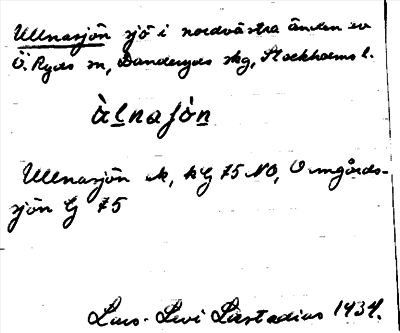 Ullnasjön sjö i nordvästra änden av
Ö. Ryds sn, Danderyds skg, Stockholms l.
àlnaʃön
Ullnasjön k, kG 75 NO, Omgårds-
sjön G 75
Lars-Levi Læstadius 1934.